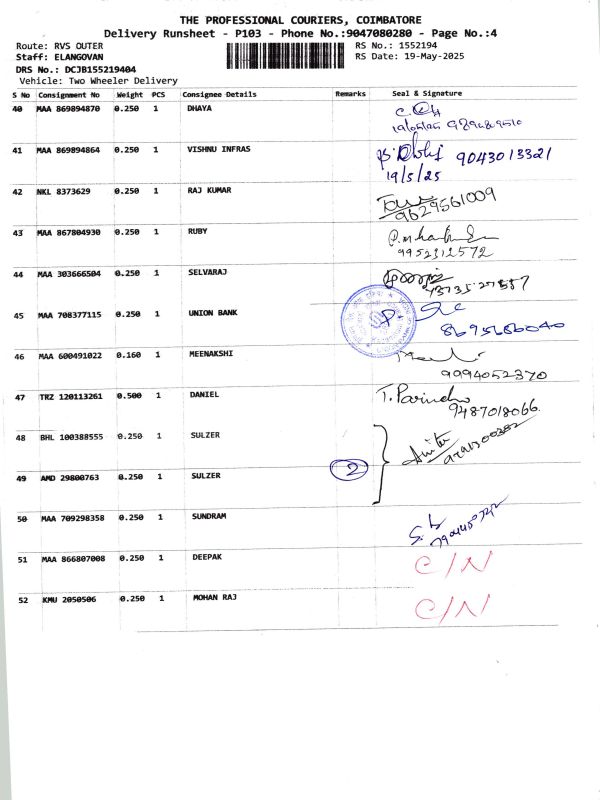 THE PROFESSIONAL COURIERS, COIMBATORE
Delivery Runsheet - P103 - Phone No.:9047080280 - Page No.:4
Route: RVS OUTER RS No.: 1552194
Staff: ELANGOVAN RS Date: 19-May-2025
DRS No.: DCJB155219404
Vehicle: Two Wheeler Delivery
S No Consignment No Weight PCS Consignee Details Remarks Seal & Signature
40 MAA 869894870 0.250 1 DHAYA
19/05/25
41 MAA 869894864 0.250 1 VISHNU INFRAS 9043013321
19/5/25
42 NKL 8373629 0.250 1 RAJ KUMAR
9629561009
43 MAA 867804930 0.250 1 RUBY
9952312572
44 MAA 303666504 0.250 1 SELVARAJ
45 MAA 708377115 0.250 1 UNION BANK
8695686040
46 MAA 600491022 0.160 1 MEENAKSHI
9994052370
47 TRZ 120113261 0.500 1 DANIEL
9487018066
48 BHL 100388555 0.250 1 SULZER
2
49 AMD 29800763 0.250 1 SULZER
50 MAA 709298358 0.250 1 SUNDRAM
51 MAA 866807008 0.250 1 DEEPAK C/N
52 KMU 2050506 0.250 1 MOHAN RAJ C/N